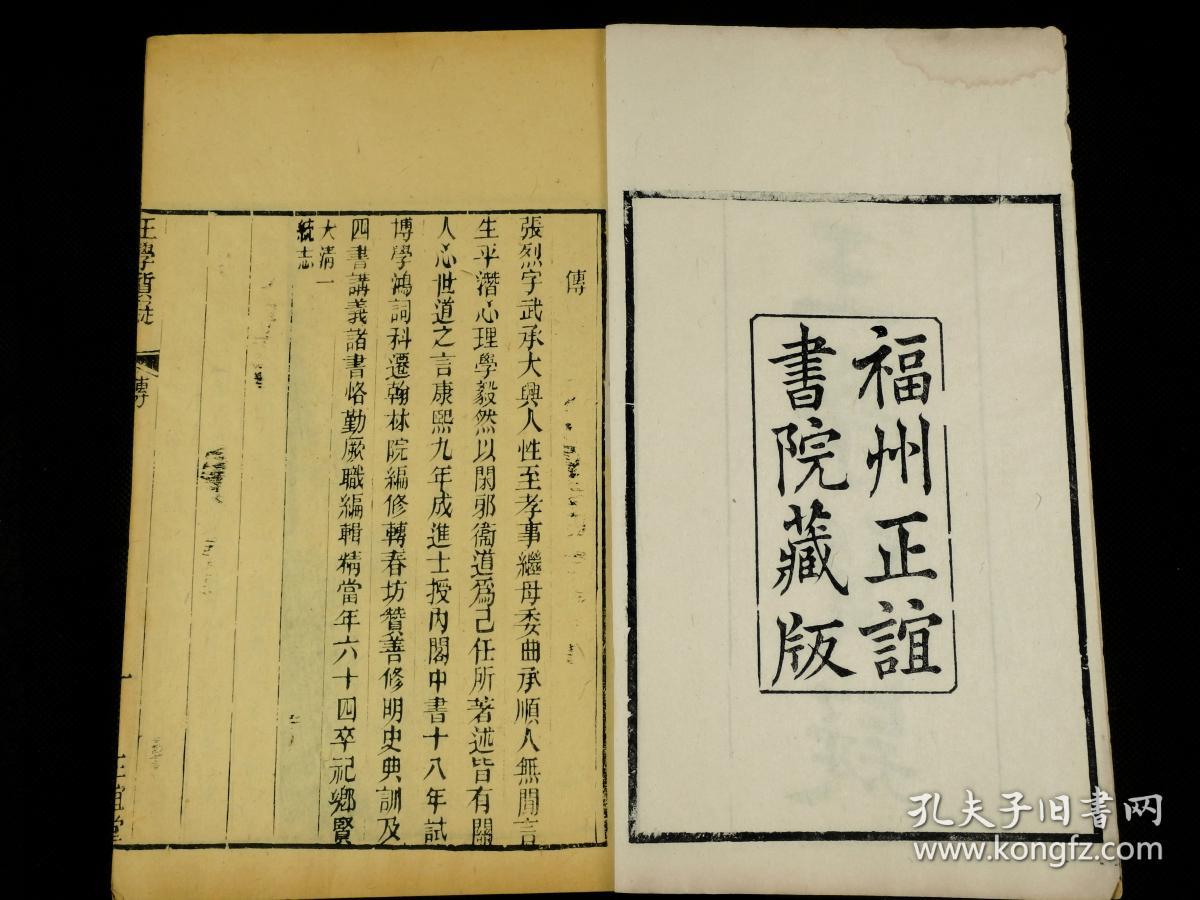 福州正誼
書院藏版
傳
張烈字武承大興人性至孝事繼母委曲承順人無閒言
生平潛心理學毅然以閑邪衞道爲己任所著述皆有關
人心世道之言康熙九年成進士授內閣中書十八年試
博學鴻詞科遷翰林院編修轉春坊贊善修明史典訓及
四書講義諸書恪勤厥職編輯精當年六十四卒祀鄉賢
大清一
統志
王學質疑
傳
一
正誼堂
孔夫子旧书网
www.kongfz.com